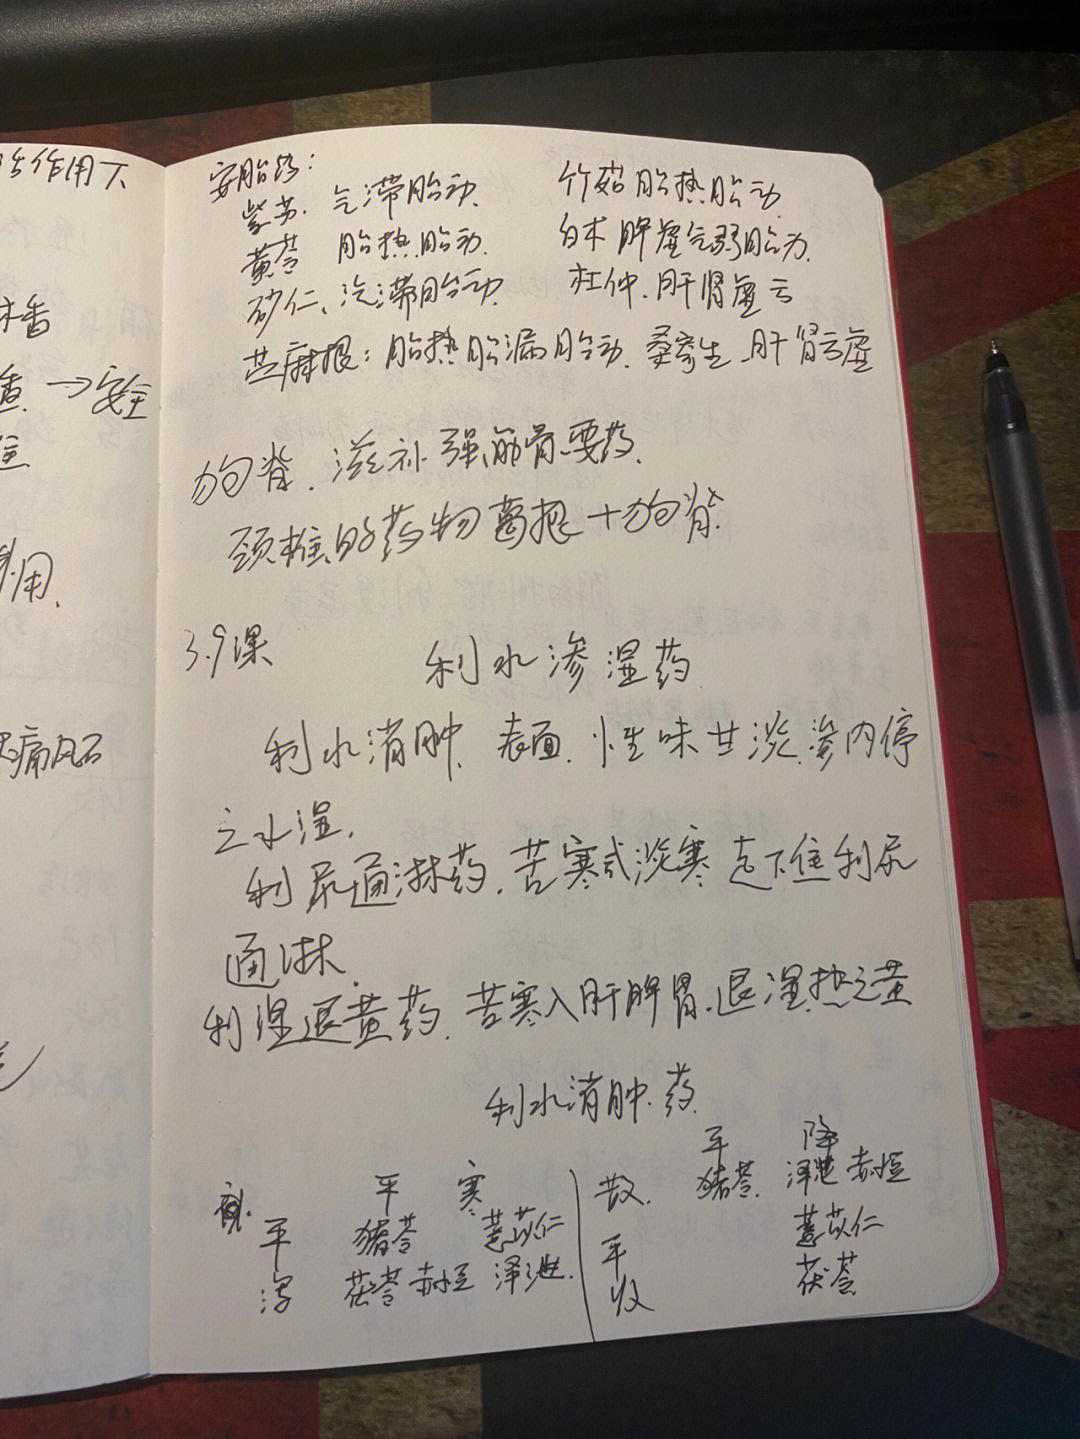 作用下
木香
→安全
利用.
痛风石
安胎药:
紫苏. 气滞胎动. 竹茹 胎热胎动.
黄芩 胎热胎动. 白术 脾虚气弱胎动.
砂仁、气滞胎动. 杜仲. 肝肾虚亏
苎麻根: 胎热胎漏胎动. 桑寄生 肝肾亏虚
狗脊. 滋补强筋骨要药.
颈椎的药物葛根+狗脊.
3.9课 利水渗湿药.
利水消肿. 表面. 性味甘淡. 渗内停
之水湿.
利尿通淋药. 苦寒或淡寒 走下焦利尿
通淋.
利湿退黄药. 苦寒入肝脾胃. 退湿热之黄
利水消肿药.
平 寒
平 猪苓 薏苡仁
泻 茯苓 赤小豆 泽泄.
平 降
散. 猪苓. 泽泄 赤小豆
平 薏苡仁
收 茯苓